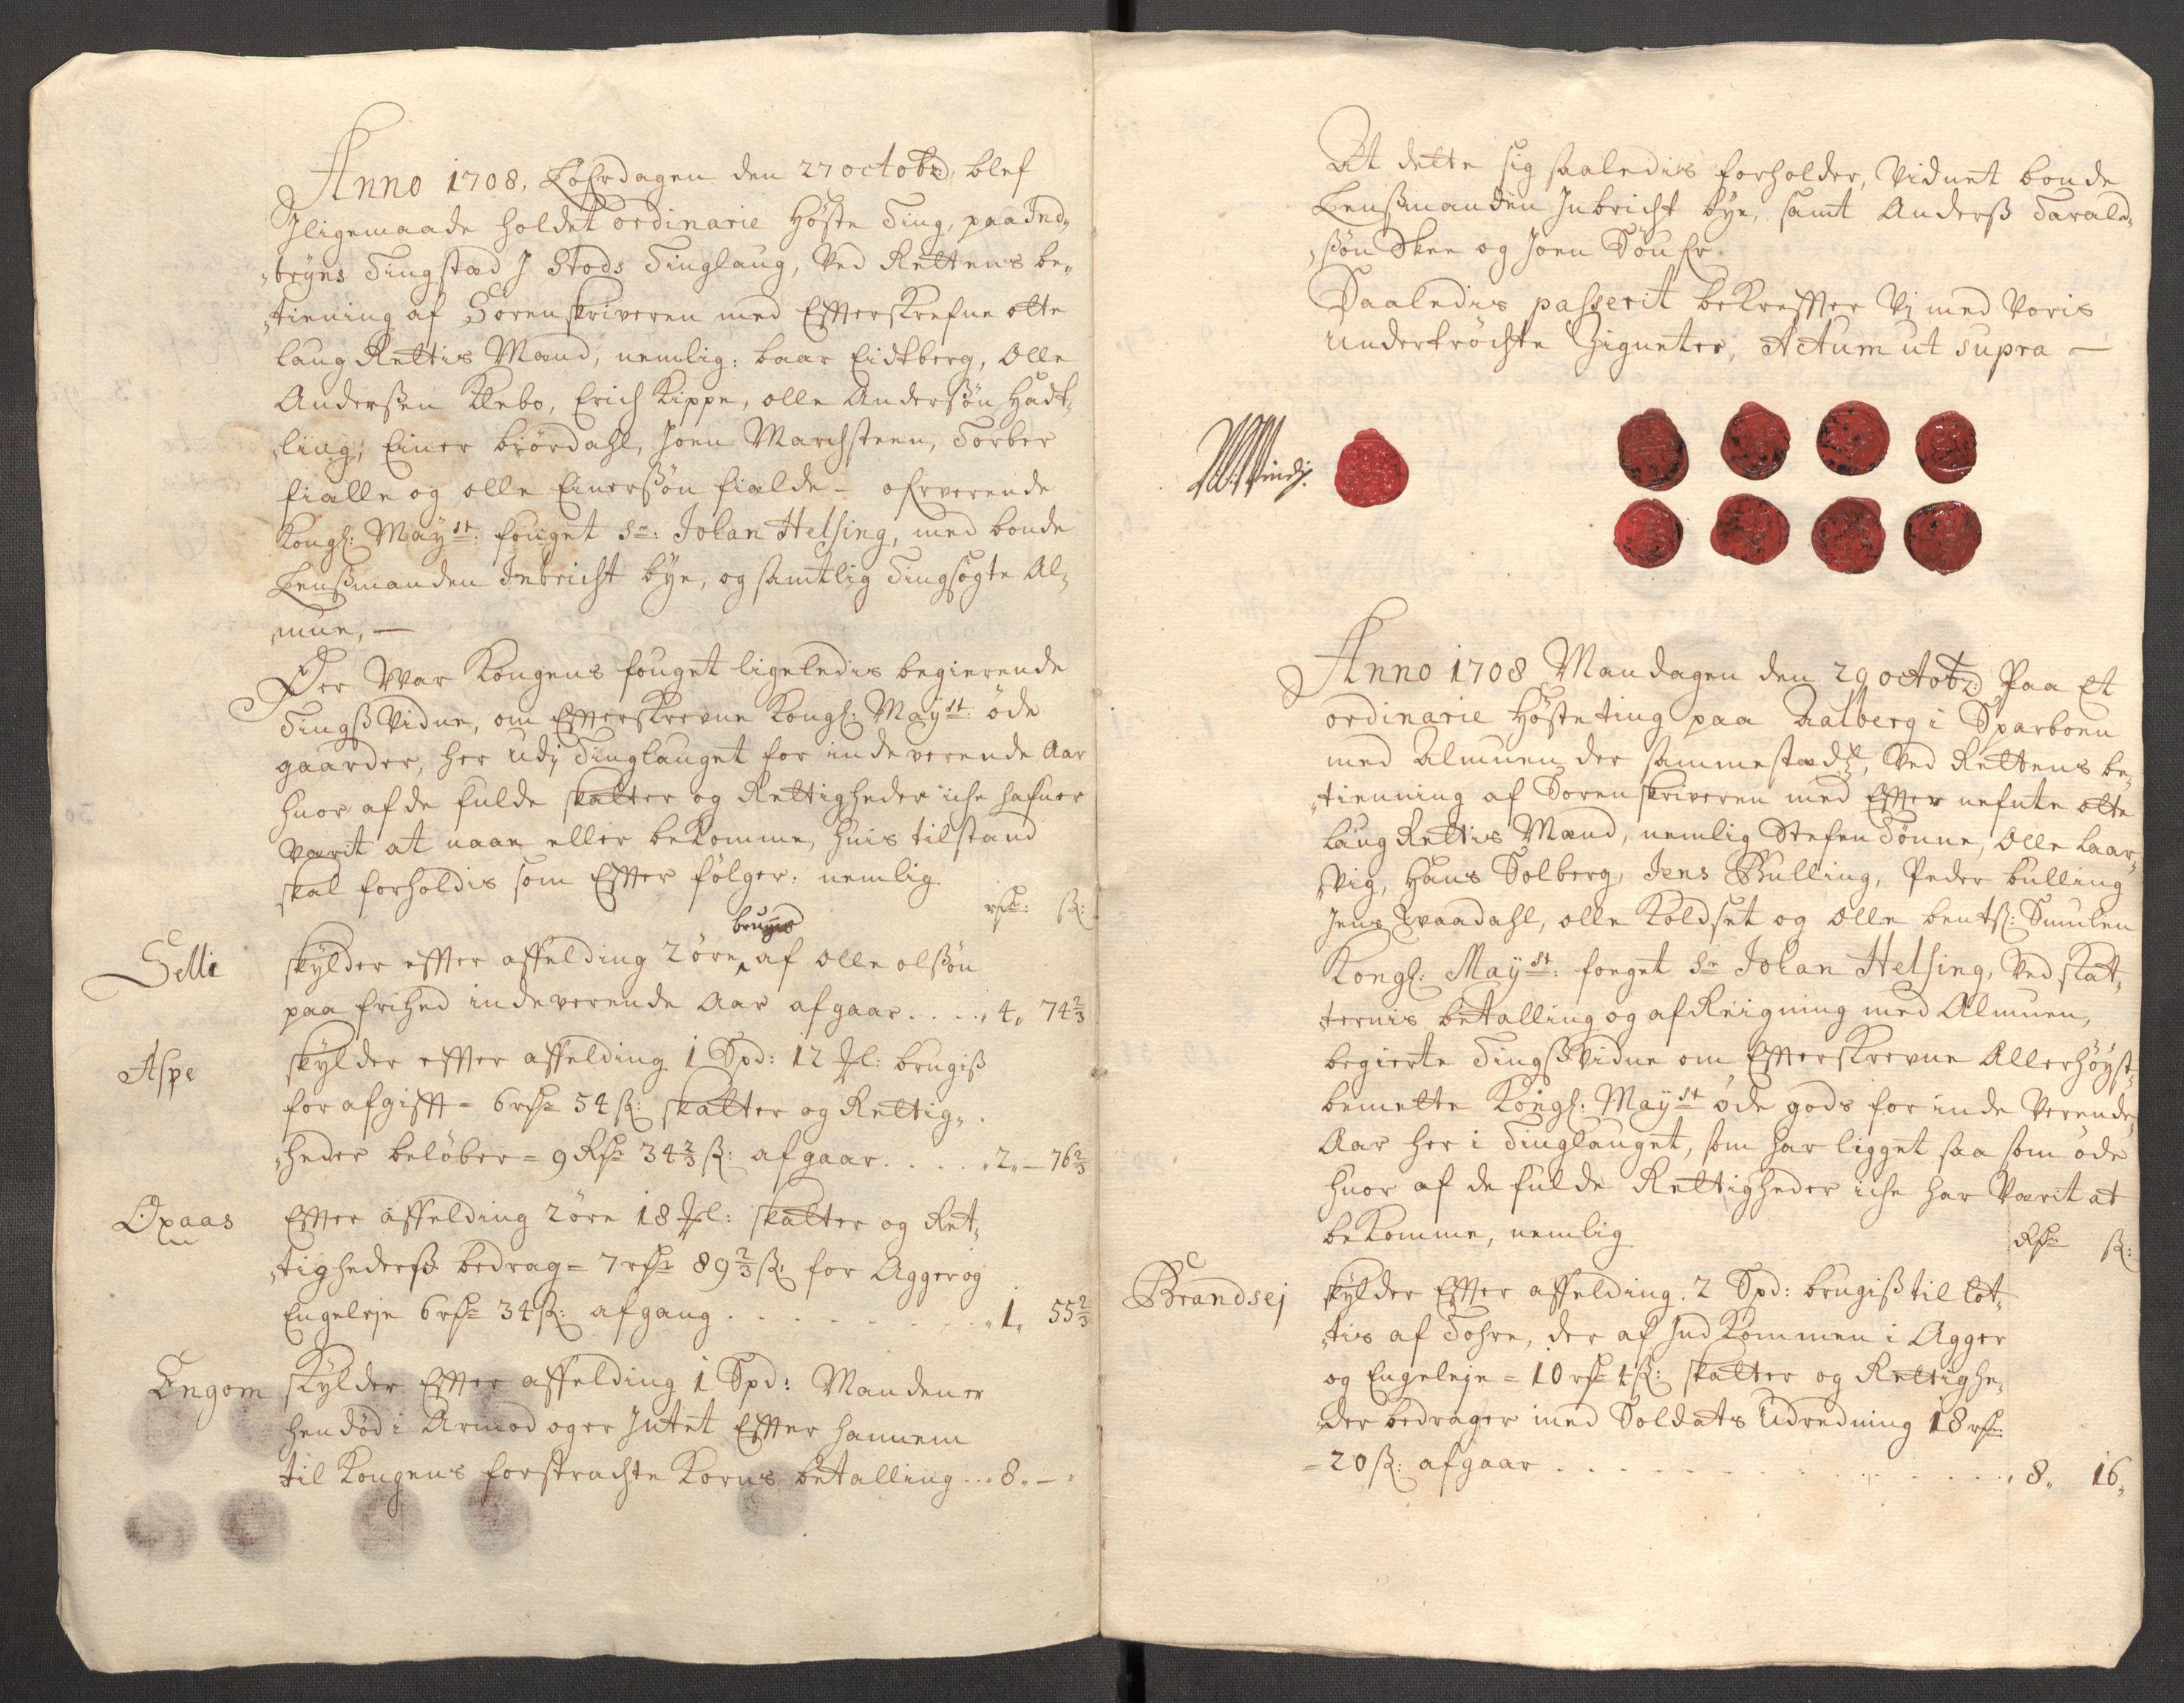 Anno 1708, Løfverdagen den 27 octobr, blef
Iligemaade holdet ordinarie Høste Ting, paa Ind-
„bryns Tingstæd J Stods Tinglaug, Ved Rettens be-
„tiening af Sorenskriveren med Effterskrefne otte
Laug Rettis Mænd, nemlig: baar Eidtberg, Olle
Anderßen Klebo, Erich Kippe, olle Anderßøn Hadt-
„ling, Einer biørdahl, Joen Marchsteen, Torber
fialle og olle Einerßøn fialde - ofververende
Kongl: Mayst: fouget Sr: Johan Helsing, med bonde
Lenßmanden Inbricht bye, og samtlig Tingsøgte Al-
„mue, —
Der War Kongens fouget ligeledis begierende
Tingß Vidne, om Effterskrevne Kongl: Mayst: øde
gaarder, her udj Tinglauget for inde verende Aar
huor af de fulde skatter og Rettigheder iche hafuer
Værit at naae eller bekomme, huis tilstand
skal forholdis som Effter følger: nemlig
rdr: ß:
Selli skylder effter affelding 2 øre bruges af olle olßøn
paa frihed indeverende Aar afgaar .... 4„ 74⅔
Aspe skylder effter affelding 1 Spd: 12 ml: brugiß
for afgifft = 6 rdr 54 ß: skatter og Rettig-
„heder beløber = 9 Rdr 34⅔ ß: afgaar ..... 2„ — 76⅔
Opaas Effter affelding 2 øre 18 ml: skatter og Ret-
„tighederß bedrag = 7 rdr 89⅔ ß: for Agger og
Engeleje 6 rdr 34 ß: afgang .......... 1„ 55⅔
Engom skylder Effter affelding 1 Spd: Manden er
hendød i Armod og er Jntet Effter hannem
til Kongens forstrachte Korns betalling ... 8„ —
At dette sig saaledis forholder, Vidnet bonde
Lenßmanden Jnbricht bye, samt Anderß Tarald-
„ßøn Skee og Joen
Saaledis passerit bekreffter Vj med Voris
undertrøchte Zigneter, Actum ut supra —
Anno 1708 Mandagen den 29 octobr: Paa Et
ordinarie Høsteting paa Aalberg i Sparboen
med Almuen der sammestædz, Ved Rettens be-
„tienning af Sorenskriveren med Effter nefnte otte
Laug Rettis Mænd, nemlig Steffen Tønne, Olle Laar-
„Vig, Hans Solberg, Jens Bulling, Peder bulling
Jens Vaadahl, olle Koldset og olle bentß: Smulen
Kongl: Mayst: foeget Sr Johan Helsing, Ved skat-
„ternis betalling og afReigning med Almuen,
begierte Tingßvidne om Effterskrevne Allerhøyst-
bemelte Kongl: Mayst øde gods for inde Verende
Aar her i Tinglauget, som har ligget saa som øde
huor af de fulde Rettigheder iche har Værit at
bekomme, nemlig
Rdr ß:
Brandsej skylder Effter affelding. 2 Spd: brugiß til løt-
„tis af Tohre, der af Jndkommen i Agger
og Engeleje = 10 rdr 4 ß: skatter og Rettighe-
„der bedrager med Soldats Udredning 18 rdr:
= 20 ß: afgaar .................... 8„ 16„